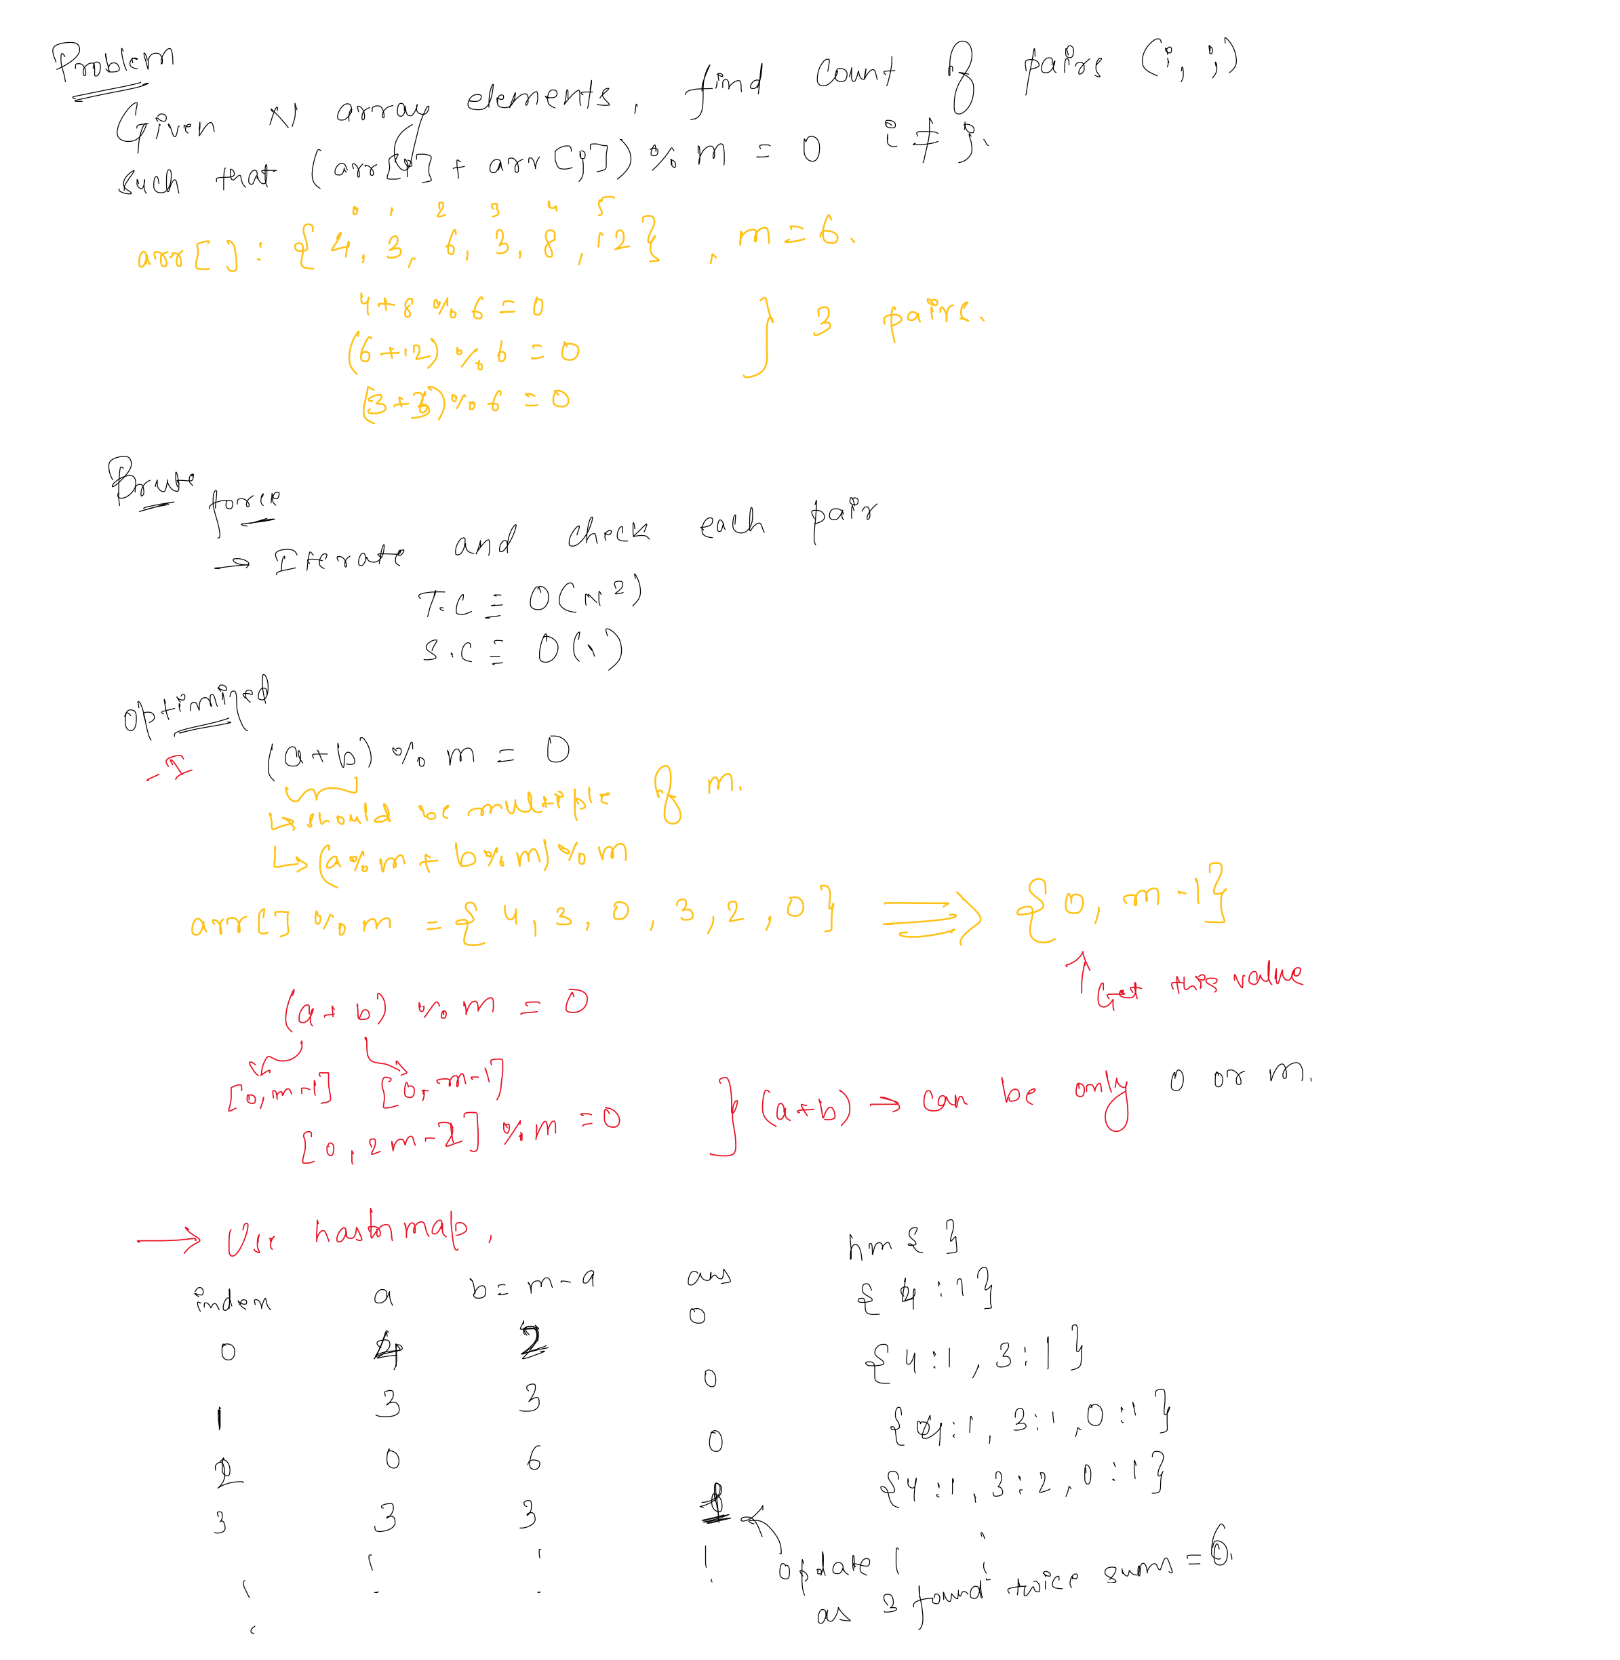 Problem
Given N array elements, find count of pairs (i, j)
such that (arr[i] + arr[j]) % m = 0 i ≠ j.
0 1 2 3 4 5
arr[]: {4, 3, 6, 3, 8, 12}, m = 6.
4+8 % 6 = 0
(6+12) % 6 = 0
(3+3) % 6 = 0
} 3 pairs.
Brute force
→ Iterate and check each pair
T.C ≡ O(N²)
S.C ≡ O(1)
Optimized
- I
(a+b) % m = 0
↳ should be multiple of m.
↳ (a % m + b % m) % m
arr[] % m = {4, 3, 0, 3, 2, 0} ⟹ {0, m-1}
↑ Get this value
(a+b) % m = 0
[0, m-1] [0, m-1]
[0, 2m-2] % m = 0
} (a+b) → can be only 0 or m.
→ Use hashmap,
index a b = m-a ans hm { }
0 4 2 0 {4:1}
1 3 3 0 {4:1, 3:1}
2 0 6 0 {4:1, 3:1, 0:1}
3 3 3 1 {4:1, 3:2, 0:1}
update 1
as 3 found twice sums = 6.